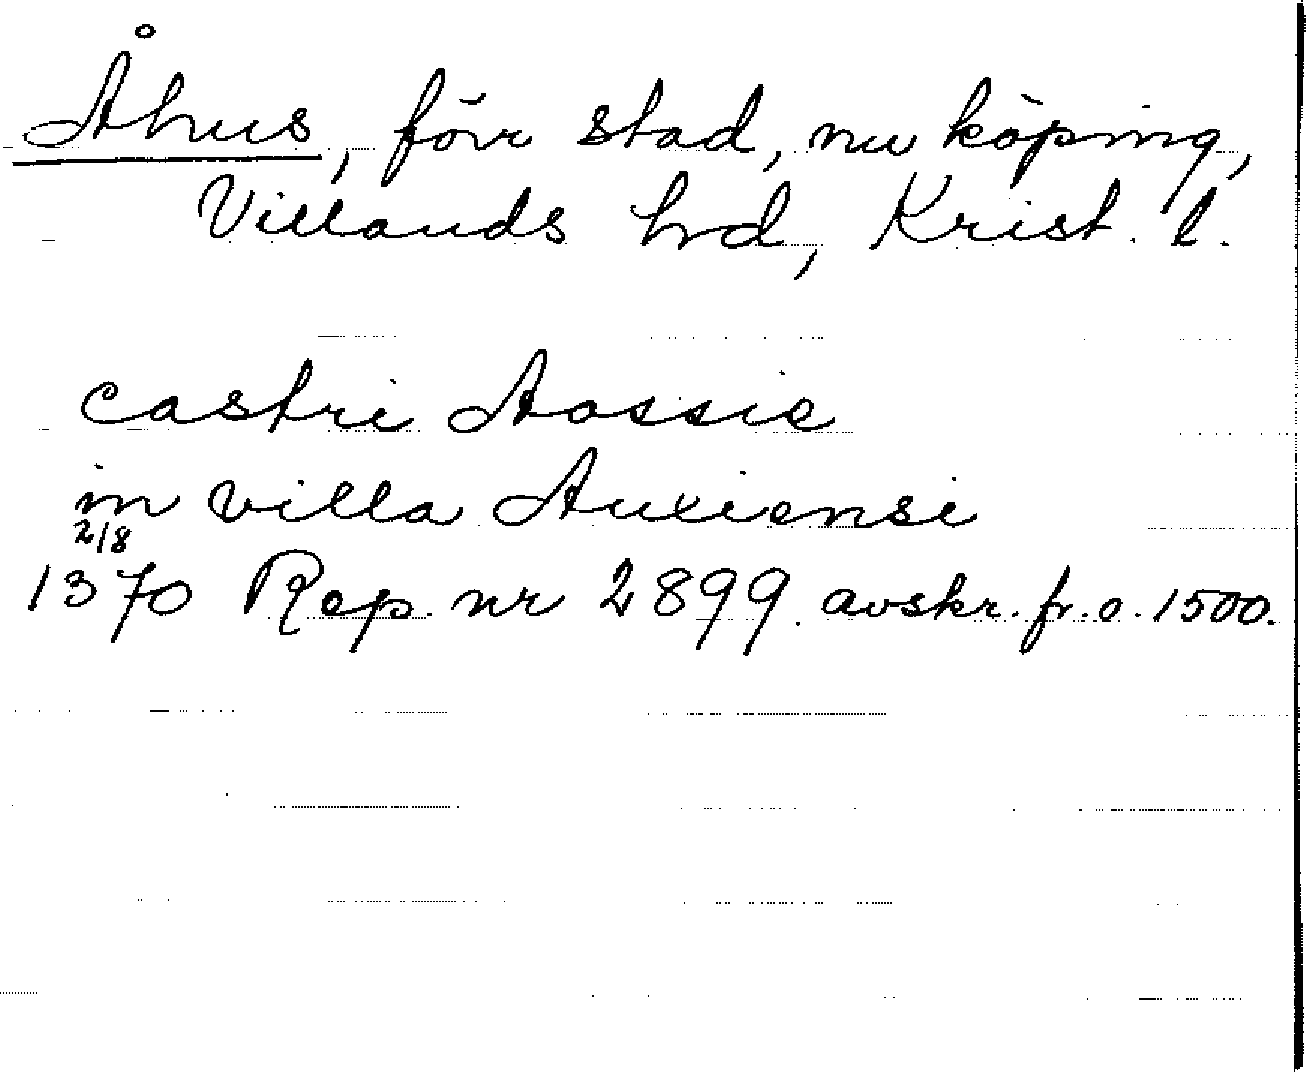 Åhus, förr stad, nu köping,
Villands hrd, Krist. l.
castri Aossie
in villa Auxiensi
2/8
1370 Rep. nr 2899. avskr. fr. o. 1500.